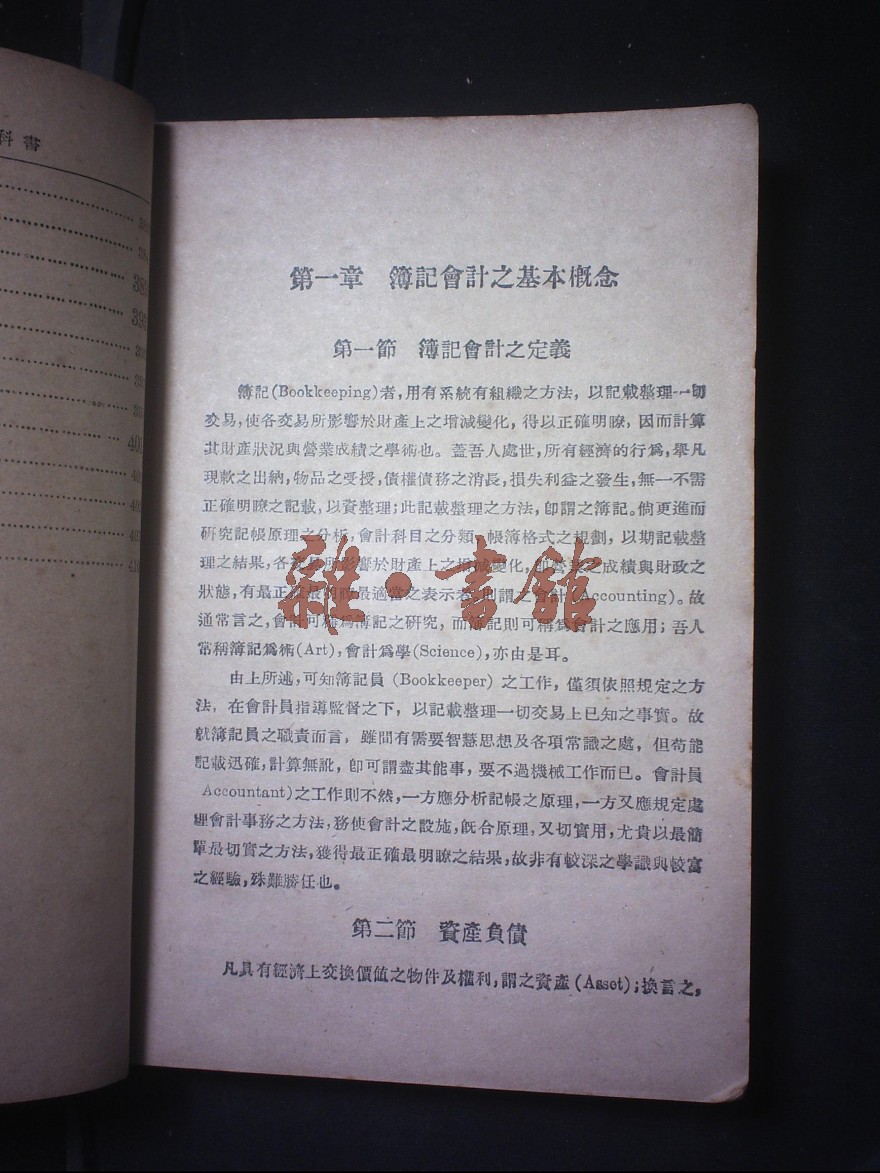 科書
389
393
401
第一章 簿記會計之基本概念
第一節 簿記會計之定義
簿記(Bookkeeping)者，用有系統有組織之方法，以記載整理一切
交易，使各交易所影響於財產上之增減變化，得以正確明瞭，因而計算
其財產狀況與營業成績之學術也。蓋吾人處世，所有經濟的行爲，舉凡
現款之出納，物品之受授，債權債務之消長，損失利益之發生，無一不需
正確明瞭之記載，以資整理；此記載整理之方法，卽謂之簿記。倘更進而
研究記帳原理之分析，會計科目之分類，帳簿格式之規劃，以期記載整
理之結果，各交易所影響於財產上之增減變化，卽營業之成績與財政之
狀態，有最正確最明瞭最適當之表示者，則謂之會計(Accounting)。故
通常言之，會計可稱爲簿記之研究，而簿記則可稱爲會計之應用；吾人
常稱簿記爲術(Art)，會計爲學(Science)，亦由是耳。
由上所述，可知簿記員(Bookkeeper)之工作，僅須依照規定之方
法，在會計員指導監督之下，以記載整理一切交易上已知之事實。故
就簿記員之職責而言，雖間有需要智慧思想及各項常識之處，但苟能
記載迅確，計算無訛，卽可謂盡其能事，要不過機械工作而已。會計員
Accountant)之工作則不然，一方應分析記帳之原理，一方又應規定處
理會計事務之方法，務使會計之設施，旣合原理，又切實用，尤貴以最簡
單最切實之方法，獲得最正確最明瞭之結果，故非有較深之學識與較富
之經驗，殊難勝任也。
第二節 資產負債
凡具有經濟上交換價值之物件及權利，謂之資產(Asset)；換言之，
雜·書館